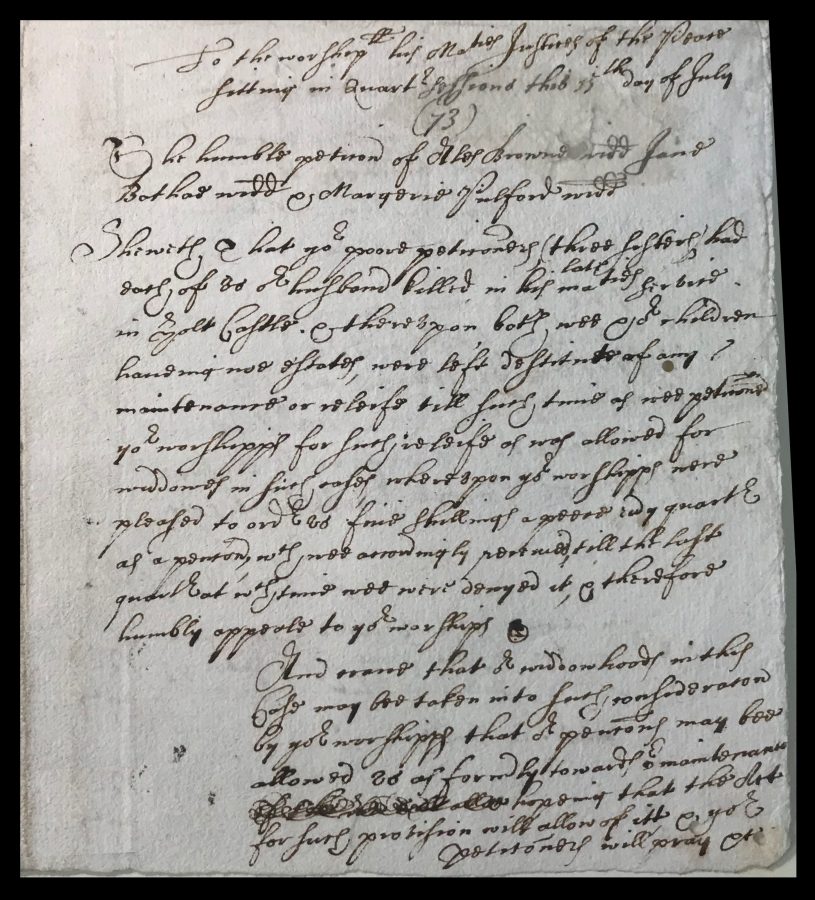 To the worshipll his Maties Justices of the Peace
sitting in Quartr Sessions this 15th day of July
(73)
The humble peticon of Ales Browne widd Jane
Bathoe widd & Margerie Pulford widd
Sheweth, That yor poore peticoners (three sisters) had
each of us or husband killed in his late maties service
in Holt Castle. & thereupon both wee & or children
haveing noe estates, were left destitute of any
maintenance or releife till such time as wee peticoned
yor worshipps for such releife as was allowed for
widdowes in such cases whereupon yor worshipps were
pleased to ordr us five shillings a peece evry quartr
as a pencon, wch wee accordingly received till the last
quartr at wch time wee were denyed it, & therefore
humbly appeale to yor worships
And crave that or widdowhoods in this
Case may bee taken into such consideracon
by yor worshipps that or pencons may bee
allowed us as formrly towards or maintenance
hopeing that the Act
for such provision will allow of itt & yor
peticoners will pray &c